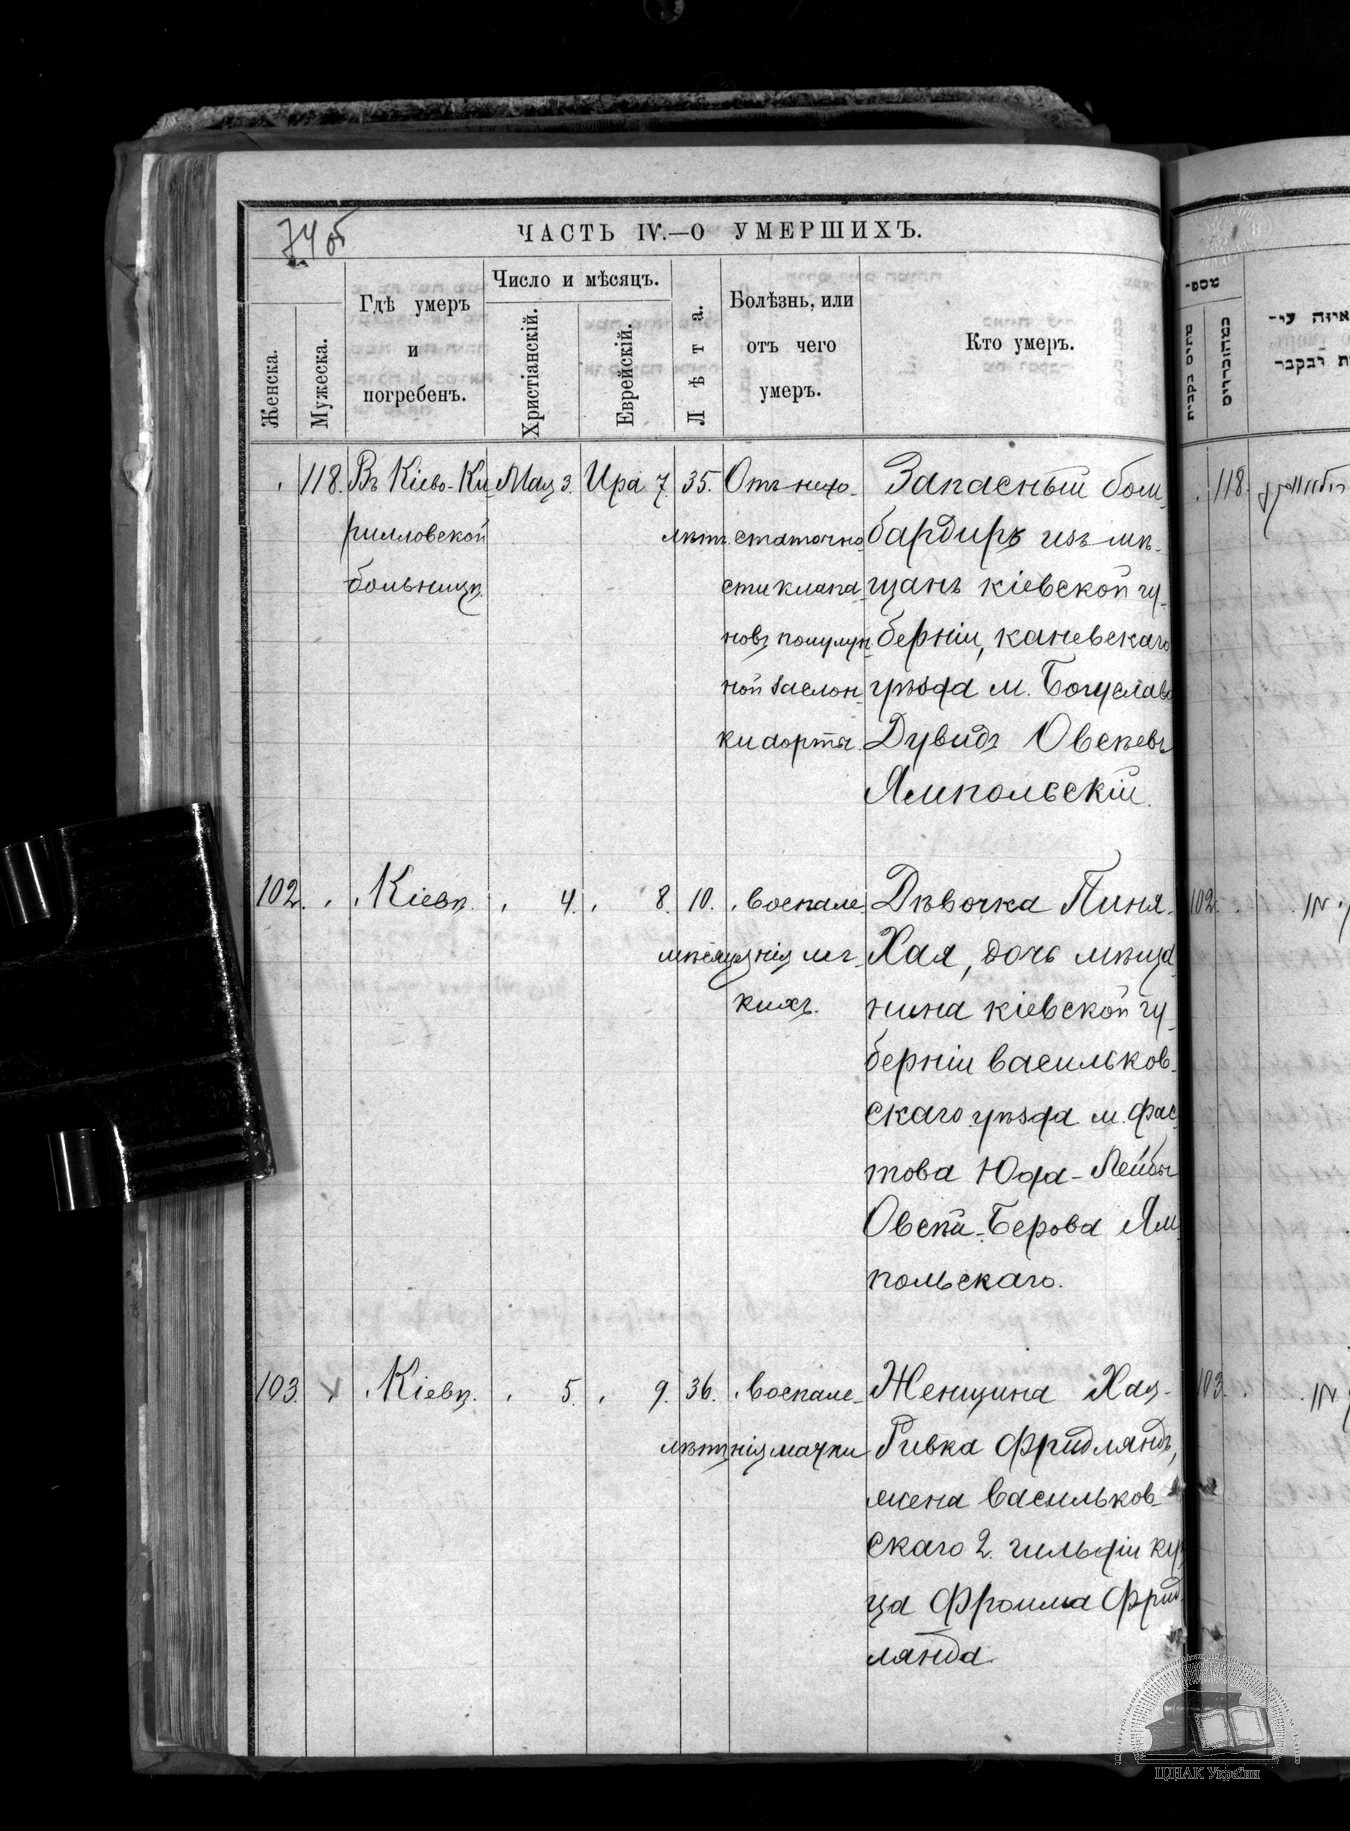 74 об
ЧАСТЬ IV.—О УМЕРШИХЪ.
Женска.
Мужеска.
Гдѣ умеръ
и
погребенъ.
Число и мѣсяцъ.
Христіанскій.
Еврейскій.
Лѣта.
Болѣзнь, или
отъ чего
умеръ.
Кто умеръ.
118. Въ Кіево-Ки-
рилловской
больницѣ.
Мая 3.
Ира 7.
35.
лѣтъ.
Отъ недо-
статочно-
сти клапа-
новъ полулун-
ной заслон-
ки аорты.
Запасный бом-
бардиръ изъ мѣ-
щанъ кіевской гу-
берніи, каневскаго
уѣзда м. Богуслава
Дувидъ Овсѣевъ
Ямпольскій.
102.
Кіевѣ.
4.
8.
10.
мѣсяцевъ
Воспале
нія лег-
кихъ.
Дѣвочка Пиня-
Хая, дочь мѣща-
нина кіевской гу-
берніи васильков-
скаго уѣзда м. Фас-
това Юда-Лейбы
Овсѣй-Берова Ям-
польскаго.
103.
Кіевѣ.
5.
9.
36.
лѣтъ
Воспале-
нія матки
Женщина Хая-
Ривка Фридляндъ,
жена Васильков-
скаго 2. гильдіи куп
ца Фроима Фрид-
лянда
מספר
118.
102.
103.
ЦДІАК України